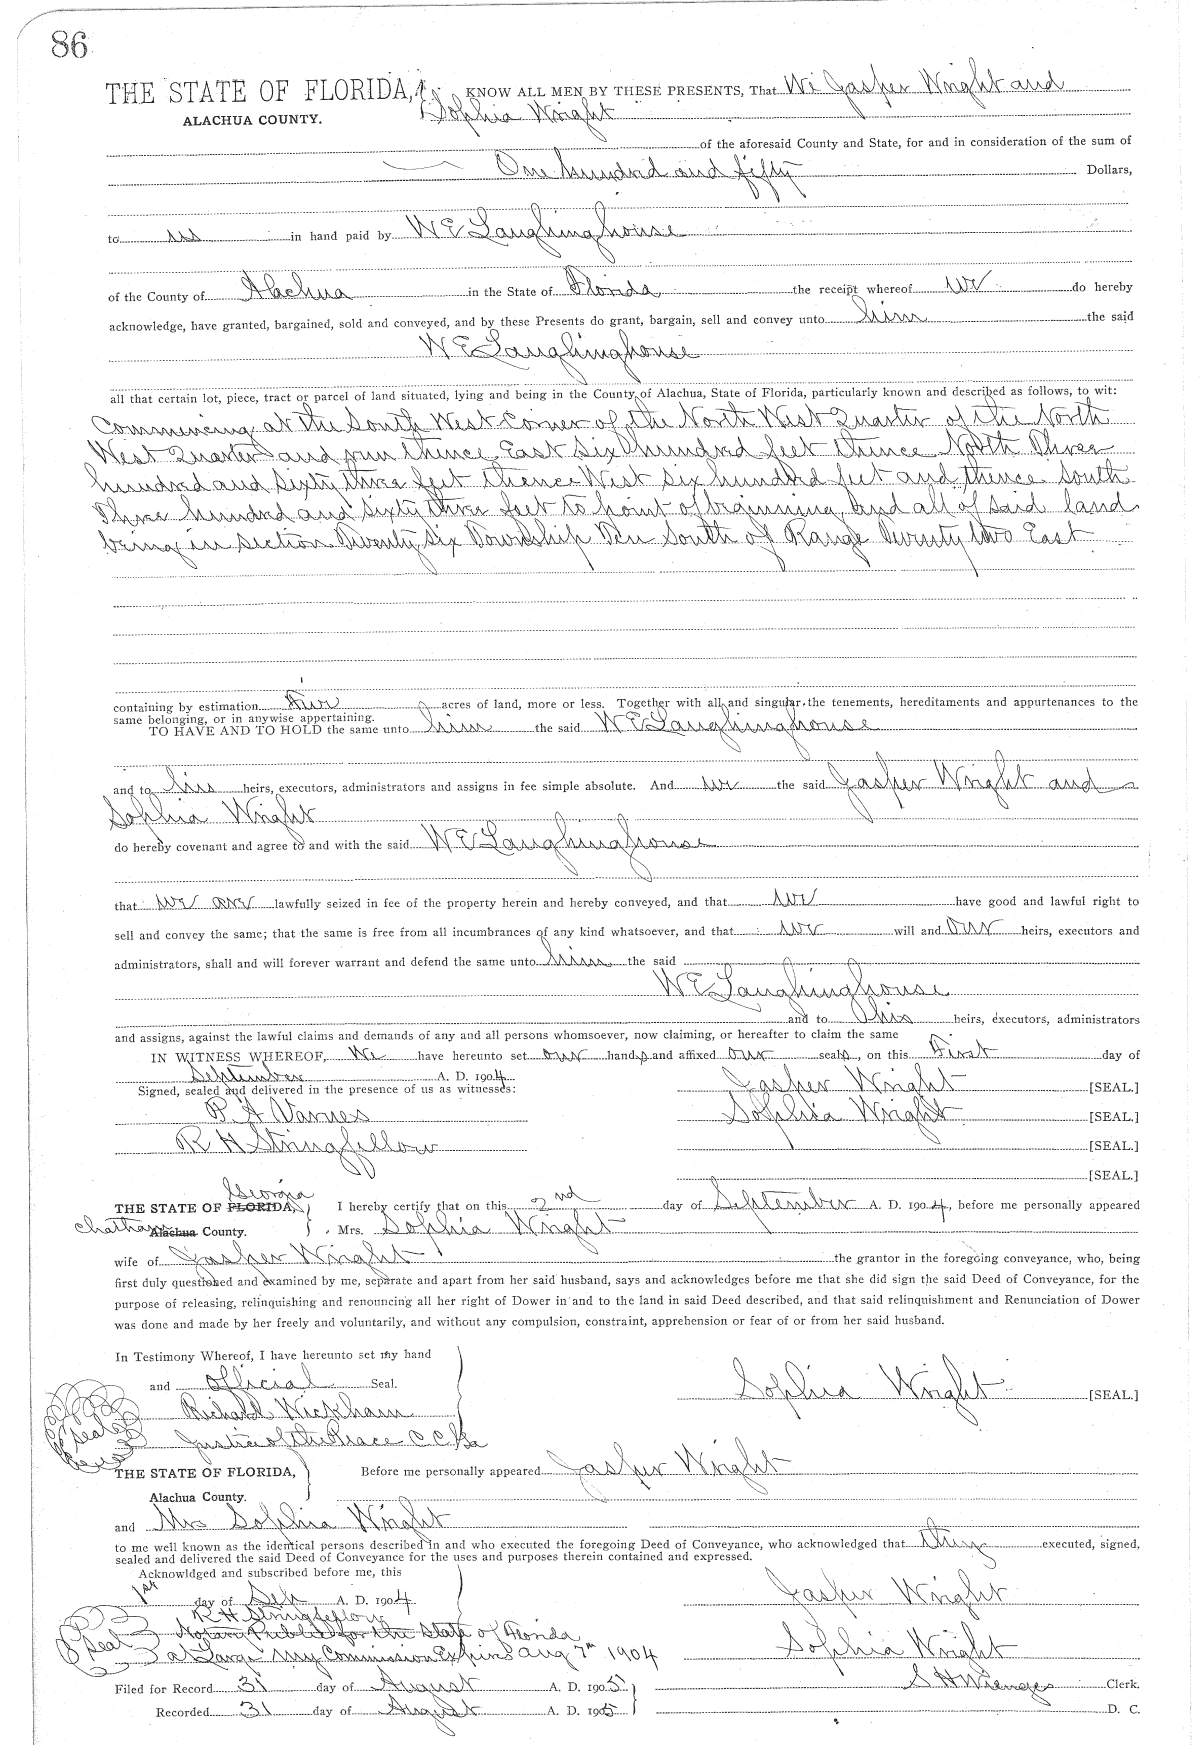 86
THE STATE OF FLORIDA, KNOW ALL MEN BY THESE PRESENTS, That We Jasper Wright and
ALACHUA COUNTY. Sophia Wright
of the aforesaid County and State, for and in consideration of the sum of
One hundred and fifty Dollars,
to us in hand paid by W E Laughinghouse
of the County of Alachua in the State of Florida the receipt whereof we do hereby
acknowledge, have granted, bargained, sold and conveyed, and by these Presents do grant, bargain, sell and convey unto him the said
W E Laughinghouse
all that certain lot, piece, tract or parcel of land situated, lying and being in the County of Alachua, State of Florida, particularly known and described as follows, to wit:
Commencing at the South West Corner of the North West Quarter of the North
West Quarter and run thence East Six hundred feet thence North Three
hundred and sixty three feet thence West six hundred feet and thence south
Three hundred and sixty three feet to point of beginning and all of said land
being in section Twenty Six Township Ten South of Range Twenty two East
containing by estimation five acres of land, more or less. Together with all and singular the tenements, hereditaments and appurtenances to the
same belonging, or in anywise appertaining.
TO HAVE AND TO HOLD the same unto him the said W E Laughinghouse
and to his heirs, executors, administrators and assigns in fee simple absolute. And we the said Jasper Wright and
Sophia Wright
do hereby covenant and agree to and with the said W E Laughinghouse
that we are lawfully seized in fee of the property herein and hereby conveyed, and that we have good and lawful right to
sell and convey the same; that the same is free from all incumbrances of any kind whatsoever, and that we will and our heirs, executors and
administrators, shall and will forever warrant and defend the same unto him the said
W E Laughinghouse
and to his heirs, executors, administrators
and assigns, against the lawful claims and demands of any and all persons whomsoever, now claiming, or hereafter to claim the same
IN WITNESS WHEREOF, We have hereunto set our hands and affixed our seals, on this First day of
September A. D. 1904
Signed, sealed and delivered in the presence of us as witnesses: Jasper Wright [SEAL.]
P A Varnes Sophia Wright [SEAL.]
R H Stringfellow [SEAL.]
[SEAL.]
Georgia
THE STATE OF FLORIDA, I hereby certify that on this 2nd day of September A. D. 1904, before me personally appeared
Chatham Alachua County. Mrs. Sophia Wright
wife of Jasper Wright the grantor in the foregoing conveyance, who, being
first duly questioned and examined by me, separate and apart from her said husband, says and acknowledges before me that she did sign the said Deed of Conveyance, for the
purpose of releasing, relinquishing and renouncing all her right of Dower in and to the land in said Deed described, and that said relinquishment and Renunciation of Dower
was done and made by her freely and voluntarily, and without any compulsion, constraint, apprehension or fear of or from her said husband.
In Testimony Whereof, I have hereunto set my hand
and official Seal. Sophia Wright [SEAL.]
Richard Wickham
seal Justice of the Peace C.C. Ga
THE STATE OF FLORIDA, Before me personally appeared Jasper Wright
Alachua County.
and Mrs Sophia Wright
to me well known as the identical persons described in and who executed the foregoing Deed of Conveyance, who acknowledged that they executed, signed,
sealed and delivered the said Deed of Conveyance for the uses and purposes therein contained and expressed.
Acknowldged and subscribed before me, this
1st day of Sep A. D. 1904 Jasper Wright
R H Stringfellow
Notary Public for the State of Florida
seal at Large My Commission Expires Aug 7th 1904 Sophia Wright
Filed for Record 31 day of August A. D. 1905 S H Wienges Clerk.
Recorded 31 day of August A. D. 1905 D. C.